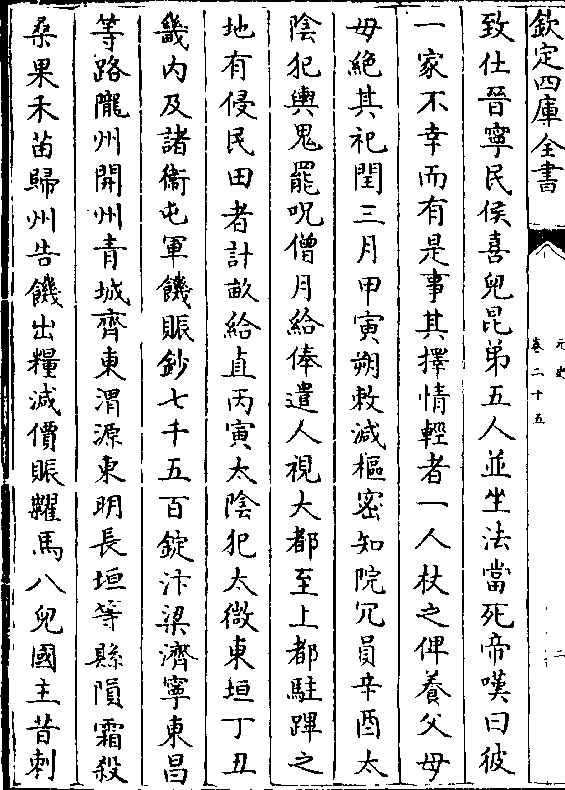 欽定四庫全書
元史
卷二十五
二
致仕晉寧民侯喜兒昆弟五人並坐法當死帝嘆曰彼
一家不幸而有是事其擇情輕者一人杖之俾養父母
毋絶其祀閏三月甲寅朔敕減樞密知院冗員辛酉太
陰犯輿鬼罷呪僧月給俸遣人視大都至上都駐蹕之
地有侵民田者計畝給直丙寅太陰犯太微東垣丁丑
畿内及諸衞屯軍饑賑鈔七千五百錠汴梁濟寧東昌
等路隴州開州青城齊東渭源東明長垣等縣隕霜殺
桑果禾苗歸州告饑出糧減價賑糶馬八兒國主昔刺